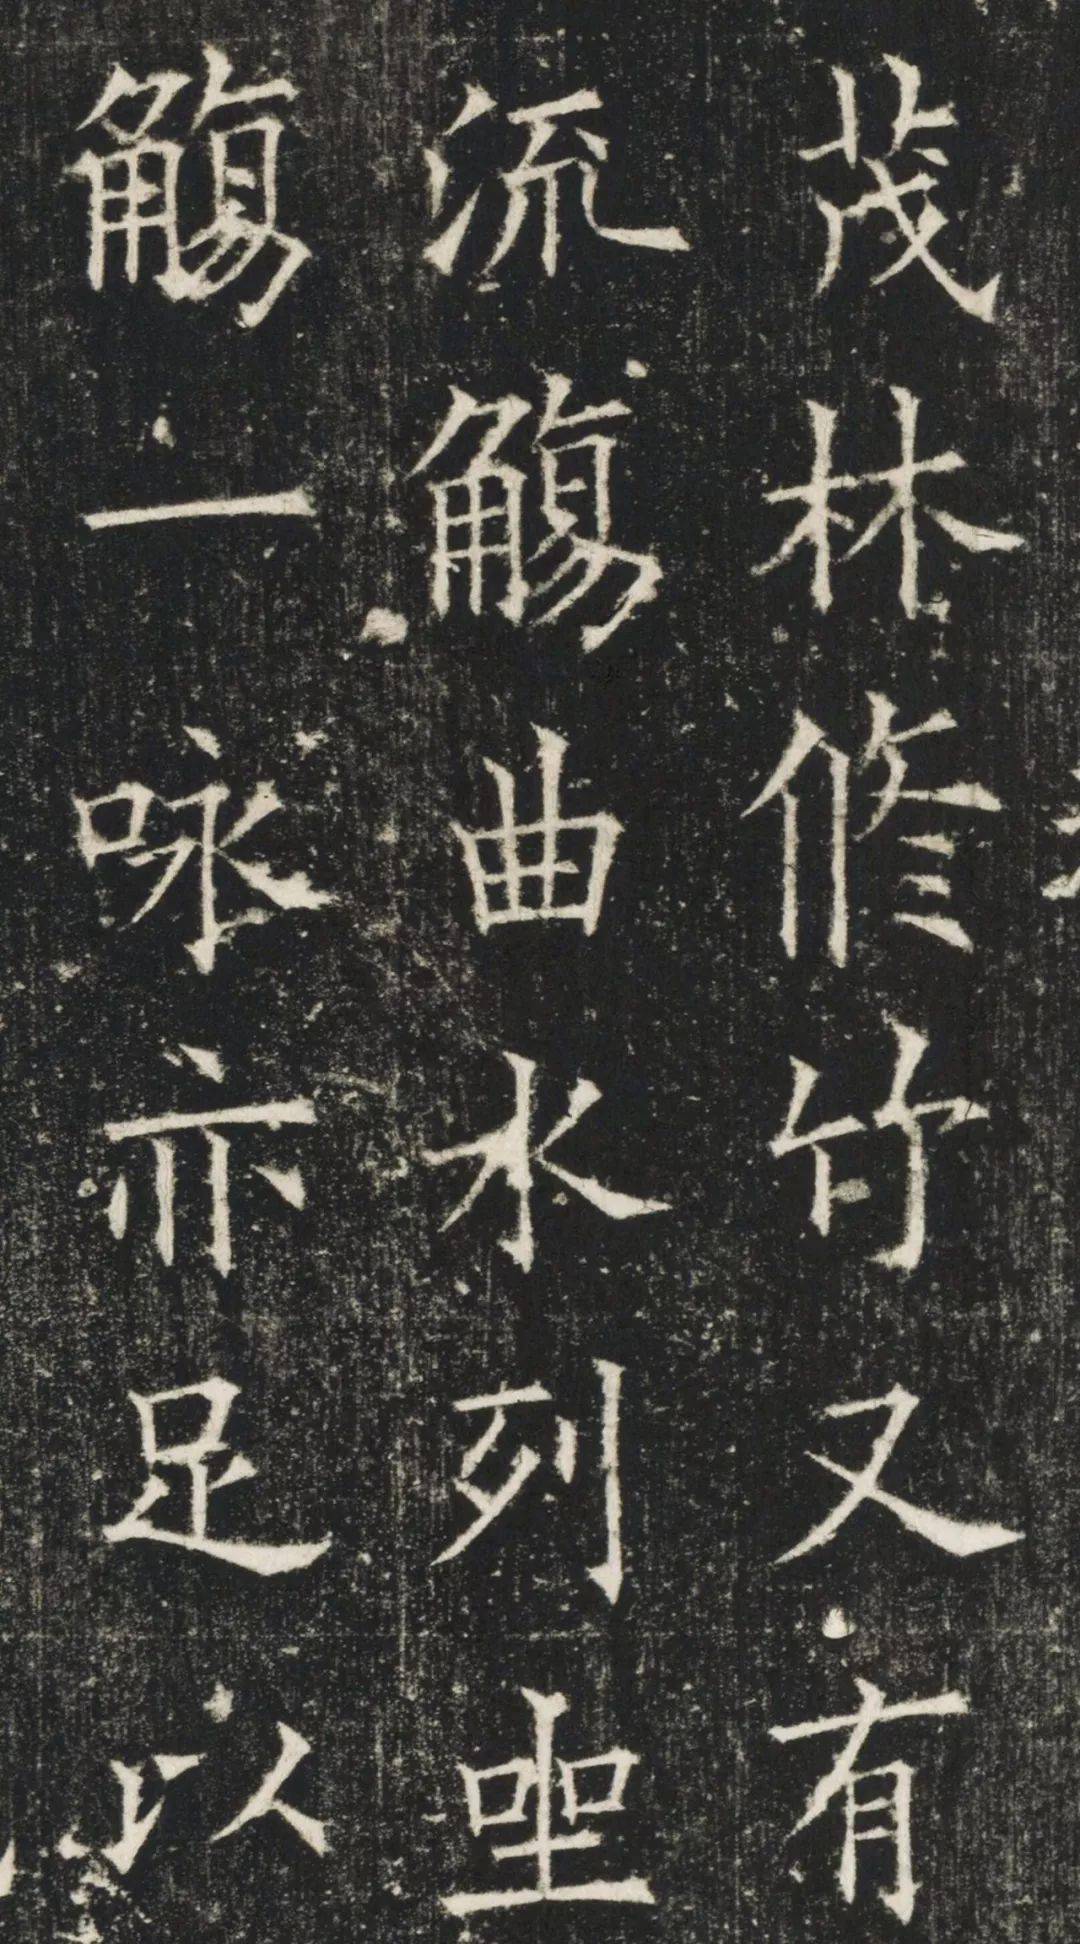 茂林修竹又有
流觴曲水列坐
觴一咏亦足以